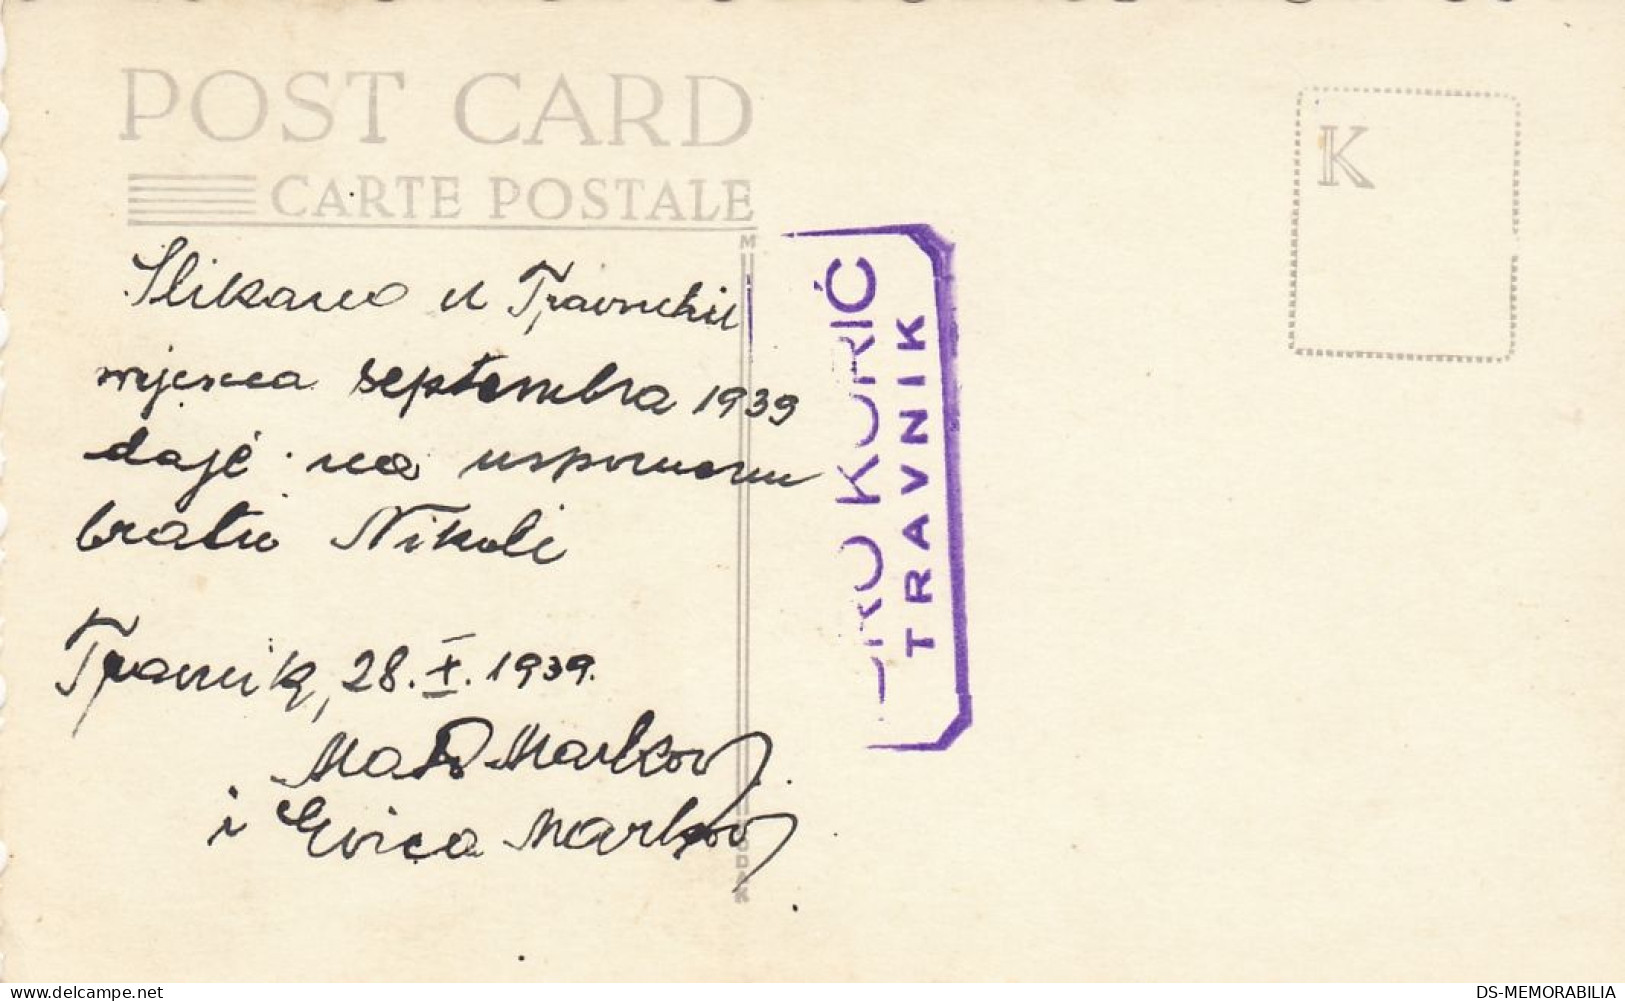 POST CARD
CARTE POSTALE
K
Slikano u Travniku
mjeseca septembra 1939
daje na uspomenu
bratu Nikoli
Travnik, 28. X. 1939.
Mato Markov
i Evica Markov
KORIĆ
TRAVNIK
delcampe.net
DS-MEMORABILIA